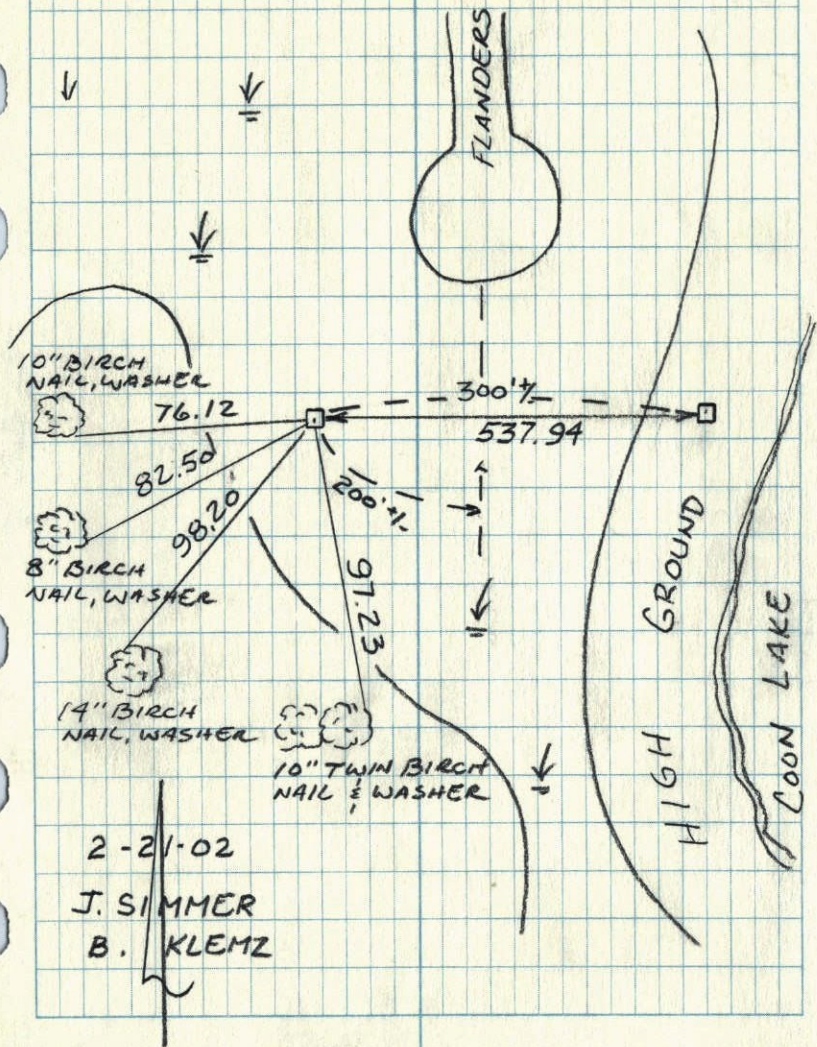 FLANDERS
10" BIRCH
NAIL, WASHER
76.12
300'+/-
537.94
82.50
200'+/-
98.20
97.23
8" BIRCH
NAIL, WASHER
14" BIRCH
NAIL, WASHER
10" TWIN BIRCH
NAIL & WASHER
HIGH GROUND
COON LAKE
2-21-02
J. SIMMER
B. KLEMZ